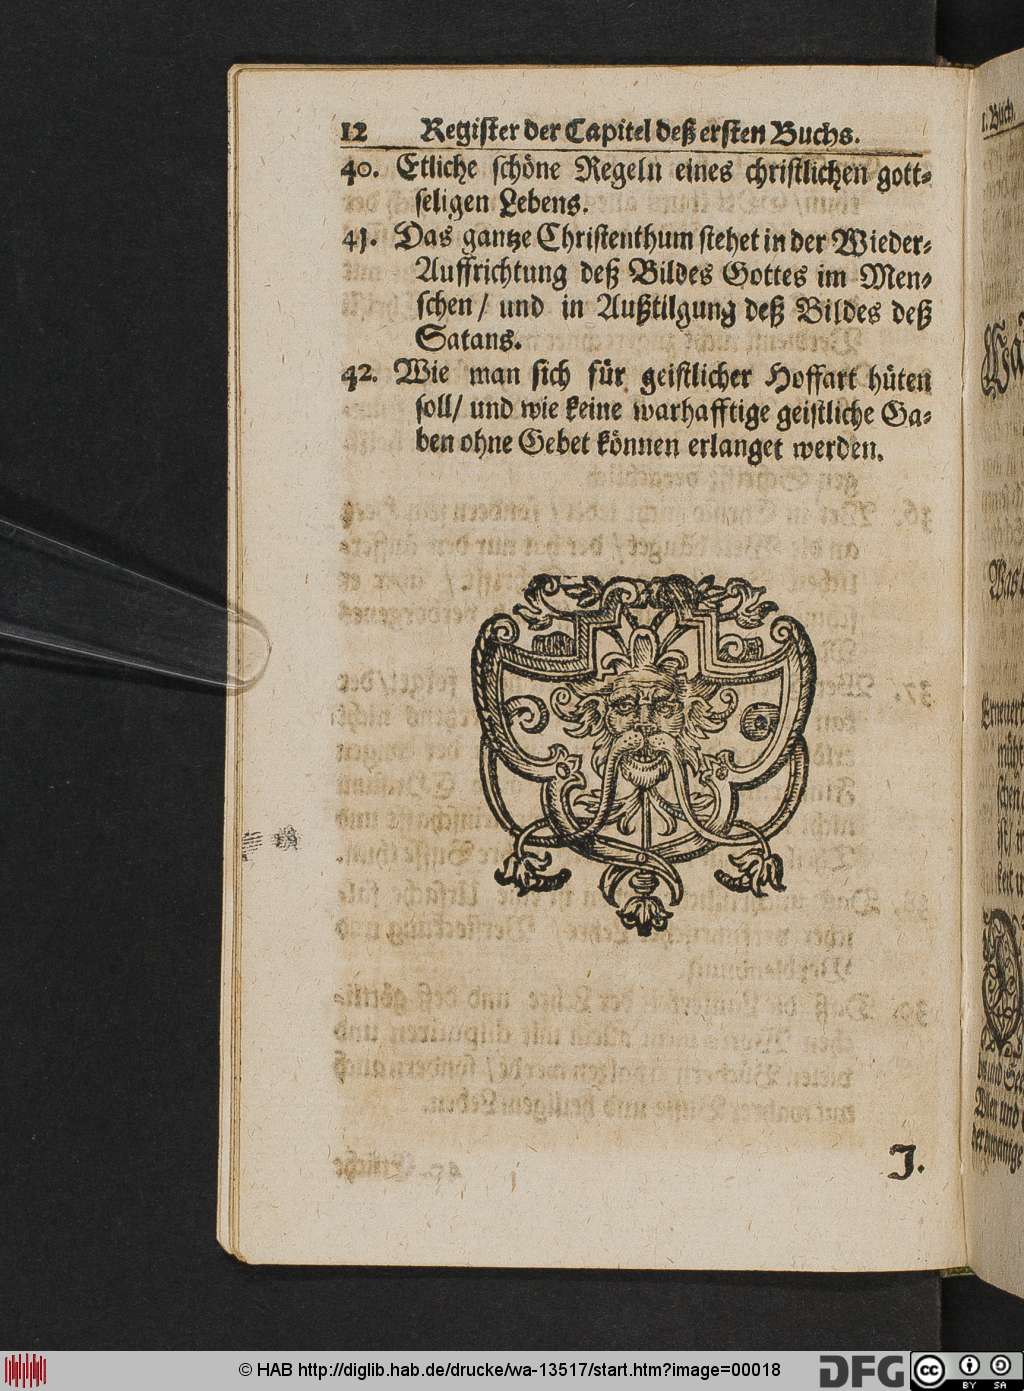 12 Register der Capitel deß ersten Buchs.
40. Etliche schöne Regeln eines christlichen gott-
seligen Lebens.
41. Das gantze Christenthum stehet in der Wieder-
Auffrichtung deß Bildes Gottes im Men-
schen / und in Außtilgung deß Bildes deß
Satans.
42. Wie man sich für geistlicher Hoffart hüten
soll / und wie keine warhafftige geistliche Ga-
ben ohne Gebet können erlanget werden.
J.
1. Buch.
© HAB http://diglib.hab.de/drucke/wa-13517/start.htm?image=00018
DFG
cc
BY SA